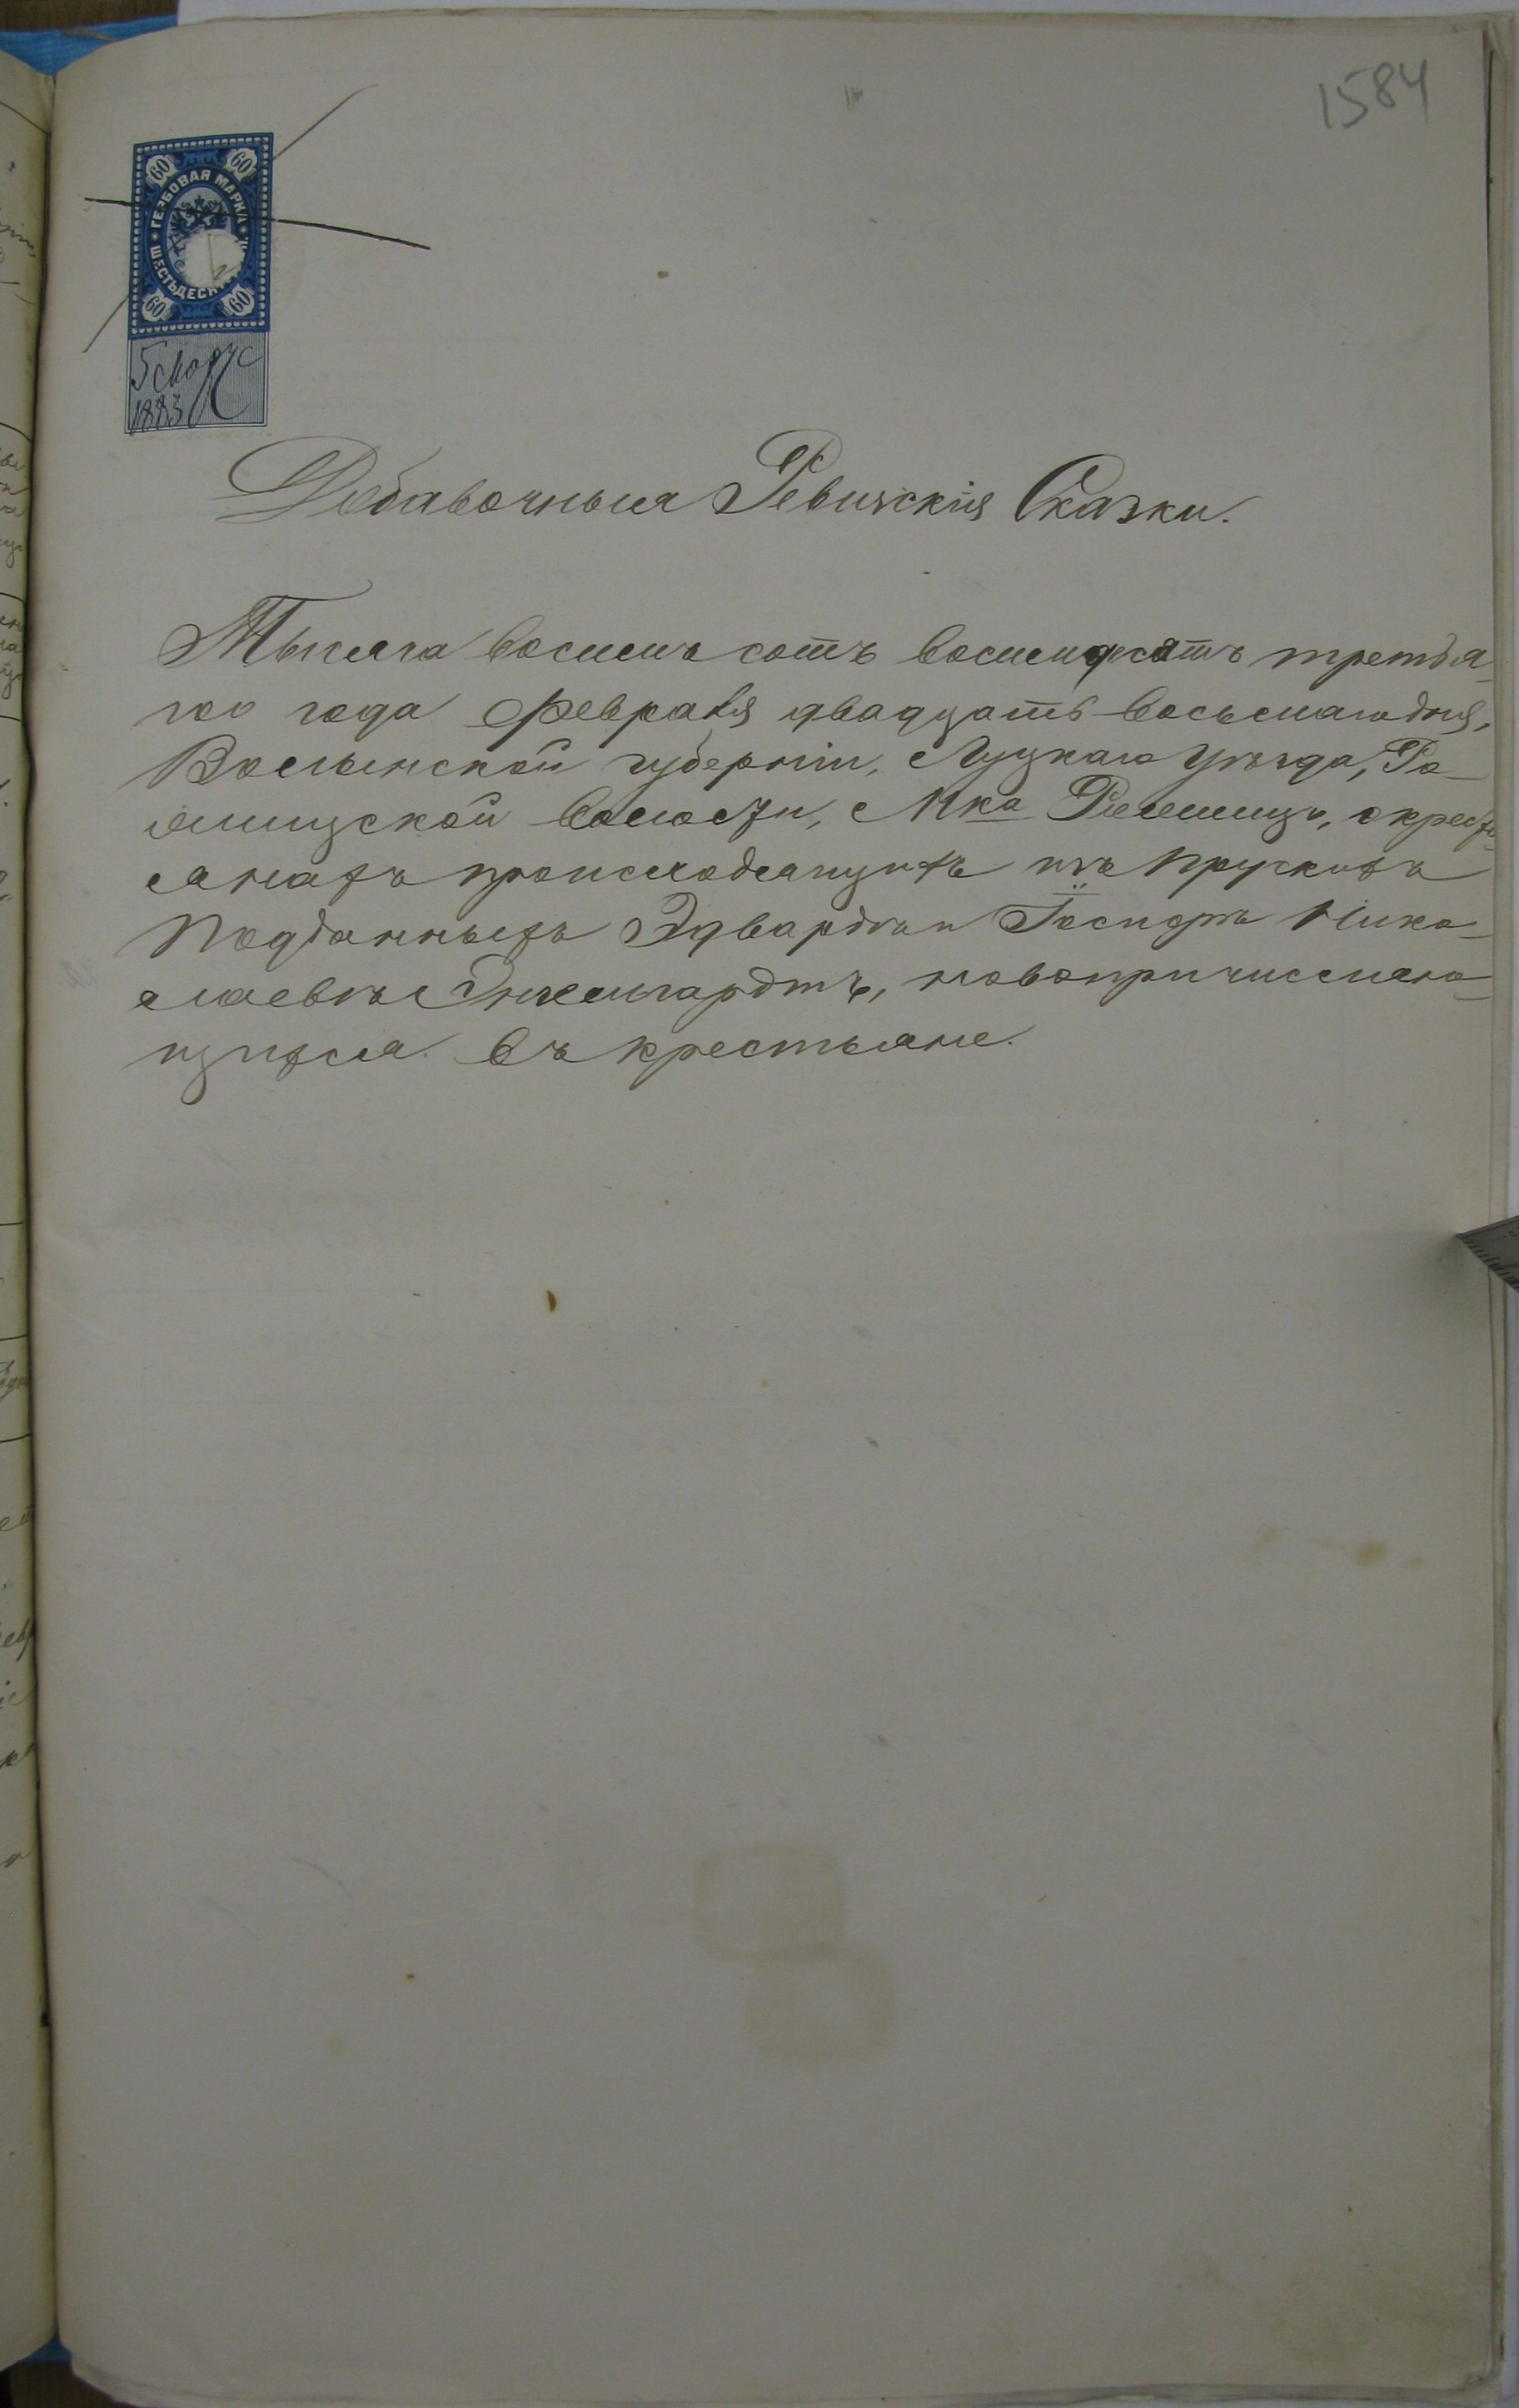 1584
60 60
ГЕРБОВАЯ МАРКА
ШЕСТЬДЕСЯ
60 60
5 Март
1883
Добавочныя Ревизскія Сказки.
Тысяча восемь сотъ восемдесятъ третья-
го года Февраля двадцать восьмаго дня,
Волынской губерніи, Луцкаго Уѣзда,
волости, М-ка о крестъ-
янахъ происходящихъ изъ Прускихъ
Подданныхъ Эдвардъ и Нико-
лаевъ Энгельгардтъ, новопричисляю-
щихся въ крестьяне.